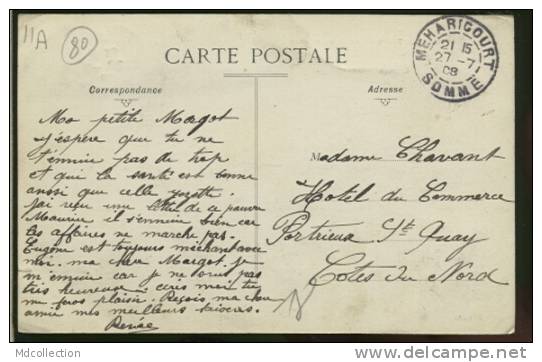 11A
80
CARTE POSTALE
Correspondance
Adresse
MEHARICOURT
21 15
27 -7
08
SOMME
Ma petite Margot
j'espère que tu ne
t'ennuie pas de trop
et que la santé est bonne
ainsi que celle
J'ai reçu une lettre de ce pauvre
Maurice il s'ennuie bien car
les affaires ne marche pas.
Eugène est toujours méchant avec
moi. ma chère Margot. je
m'ennuie car je ne suis pas
très heureuse
me feras plaisir. Reçois ma chère
amie mes meilleurs
Renée
Madame Chavant
Hotel du Commerce
Portrieux St Quay
Cotes du Nord
Mdcollection
www.delcampe.net